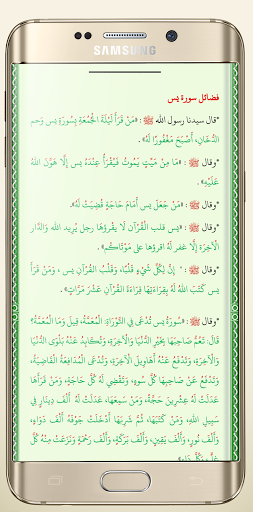 SAMSUNG
فضائل سورة يس
*قال سيدنا رسول الله ﷺ : «مَنْ قَرَأَ لَيْلَةَ الْجُمُعَةِ بِسُورَةِ يس وحم
الدُّخَانِ، أَصْبَحَ مَغْفُورًا لَهُ».
*وقال ﷺ : «مَا مِنْ مَيِّتٍ يَمُوتُ فَيُقْرَأُ عِنْدَهُ يس إِلَّا هَوَّنَ اللهُ
عَلَيْهِ»
*وقال ﷺ : «مَنْ جَعَلَ يس أَمَامَ حَاجَةٍ قُضِيَتْ لَهُ».
*وقال ﷺ : «يس قلب القُرْآنِ لا يقرؤها رجل يُريد الله والدَّار
الآخِرَةَ إِلَّا غفر له اقرؤها على مَوْتَاكُم».
*وقال ﷺ : " إِنَّ لِكُلِّ شَيْءٍ قَلْبًا، وَقَلْبُ القُرْآنِ يس ، وَمَنْ قَرَأَ
يس كَتَبَ اللهُ لَهُ بِقِرَاءَتِهَا قِرَاءَةَ القُرْآنِ عَشْرَ مَرَّاتٍ».
*وقال ﷺ : «سُورَةُ يس تُدْعَى فِي التَّوْرَاةِ: الْمُعِمَّةُ، قِيلَ وَمَا الْمُعِمَّةُ؟
قَالَ: تَعُمُّ صَاحِبَهَا بِخَيْرِ الدُّنْيَا وَالْآخِرَةِ، وَتُكَابِدُ عَنْهُ بَلْوَى الدُّنْيَا
وَالآخِرَةِ، وَتَدْفَعُ عَنْهُ أَهَاوِيلَ الْآخِرَةِ، وَتُدْعَى الْمُدَافِعَةُ الْقَاضِيَةُ،
تَدْفَعُ عَنْ صَاحِبِهَا كُلَّ سوءٍ، وَتَقْضِي لَهُ كُلَّ حَاجَةٍ، وَمَنْ قَرَأَهَا
عَدَلَتْ لَهُ عِشْرِينَ حَجَّةً، وَمَنْ سَمِعَهَا، عَدَلَتْ لَهُ أَلْفَ دِينَارٍ فِي
سَبِيلِ اللهِ، وَمَنْ كَتَبَهَا، ثُمَّ شَرِبَهَا أَدْخَلَتْ جَوْفَهُ أَلْفَ دَوَاءٍ،
وَأَلْفَ نُورٍ، وَأَلْفَ يَقِينٍ، وَأَلْفَ بَرَكَةٍ، وَأَلْفَ رَحْمَةٍ وَنَزَعَتْ مِنْهُ كُلَّ
غِلٍّ وَدَاءٍ»